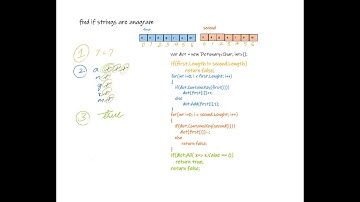 find if strings are anagram
first
second
0 1 2 3 4 5 6
0 1 2 3 4 5 6
1 7 = 7
2
3 true
var dct = new Dictionary<char, int>();
if(first.Length != second.Length)
return false;
for(int i=0; i < first.Lenght; i++)
{
if(dct.ContainsKey(first[i]))
dct[first[i]]++;
else
dct.Add(first[i],1);
}
for(int i=0; i < second.Lenght; i++)
{
if(dct.ContainsKey(second[i]))
dct[first[i]]--;
else
return false;
}
if(dct.All( x=> x.Value == 0)
return true;
return false;